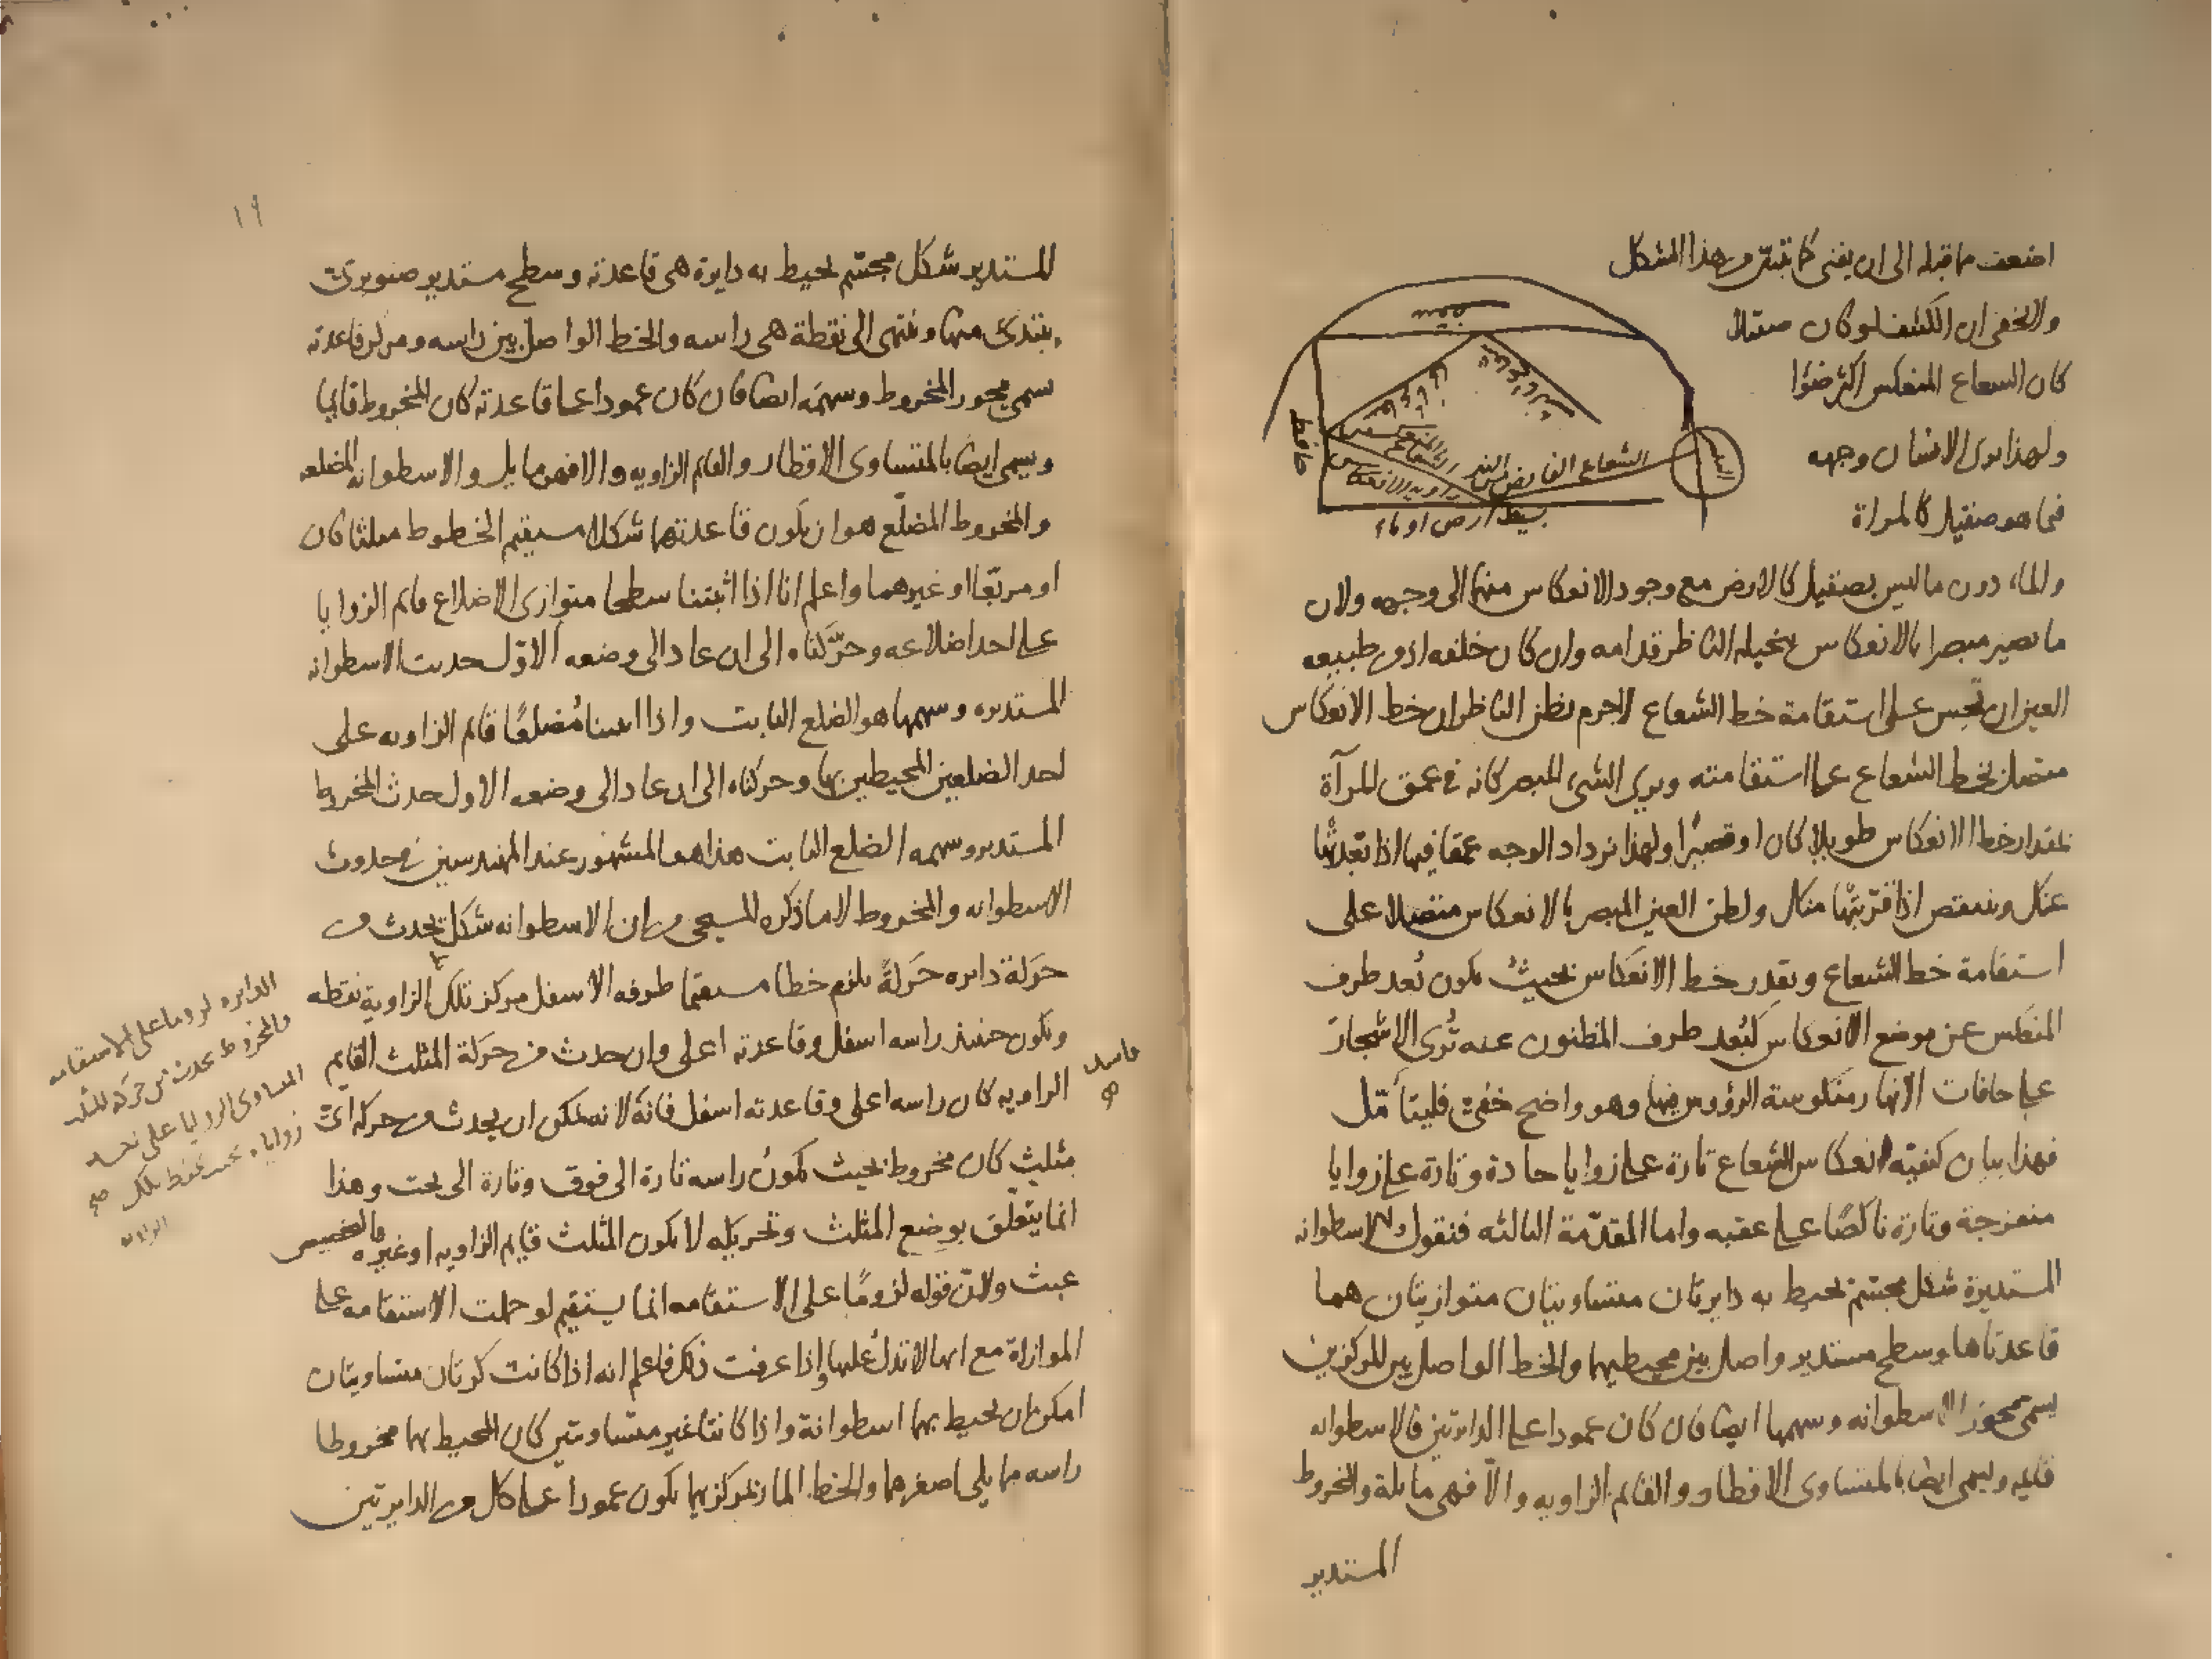 اضعف مما قبله الى ان يفنى كما تبين من هذا الشكل
ولا يخفى ان الكثيف لو كان صقيلا
كان الشعاع المنعكس اكثر ضؤا
ولهذا يرى الانسان وجهه
فيما هو صقيل كالمراة
والماء دون ما ليس بصقيل كالارض مع وجود الانعكاس منها الى وجهه ولان
ما يصير مبصرا بالانعكاس يتخيله الناظر قدامه وان كان خلفه اذ من طبيعه
العين ان تحس على استقامة خط الشعاع لاجرم يظن الناظر ان خط الانعكاس
متصل بخط الشعاع على استقامته ويرى الشىء المبصر كانه فى عمق المرآة
بمقدار خط الانعكاس طويلا كان او قصيرا ولهذا يزداد الوجه عمقا فيها اذا بعدتها
عنك وينقص اذا قربتها منك ولظن العين المبصر بالانعكاس متصلا على
استقامة خط الشعاع وبقدر خط الانعكاس بحيث يكون بُعد طرف
المنعكس عن موضع الانعكاس كبُعد طرف المظنون عنه تُرى الاشجار
على حافات الانهار منكوسة الرؤوس فيها وهو واضح خفى فليتأمّل
فهذا بيان كيفية انعكاس الشعاع تارة على زوايا حادة وتارة على زوايا
منفرجة وتارة ناكصًا على عقبه واما المقدّمة الثالثه فنقول الاسطوانه
المستديرة شكل مجسّم يحيط به دايرتان متساويتان متوازيتان هما
قاعدتاها وسطح مستدير واصل بين محيطيهما والخط الواصل بين المركزين
يسمى محور الاسطوانه وسهمها ايضا فان كان عمودا على الدايرتين فالاسطوانه
قايمه ويسمى ايضا بالمتساوى الاقطار والقايم الزاويه والّا فهى مايلة والمخروط
المستدير
بسيط ارض او ماء
الشعاع الفايض من النير
حايط
١٩
المستدير شكل مجسّم يحيط به دايرة هى قاعدته وسطح مستدير صنوبرىّ
يبتدئ منها وينتهى الى نقطة هى راسه والخط الواصل بين راسه ومركز قاعدته
يسمى محور المخروط وسهمَه ايضا فان كان عمودا على قاعدته كان المخروط قايما
ويسمى ايضا بالمتساوى الاقطار والقايم الزاويه والا فهو مايل والاسطوانه المضلعه
والمخروط المضلّع هو ان يكون قاعدتهما شكلا مستقيم الخطوط مثلثا كان
او مربّعا او غيرهما واعلم انا اذا اثبتنا سطحا متوازى الاضلاع قايم الزوايا
على احد اضلاعه وحرّكناه الى ان عاد الى وضعه الاوّل حدث الاسطوانه
المستديره وسهمها هو الضلع الثابت واذا اثبتنا مُثلثًا قايم الزاويه على
احد الضلعين المحيطين بها وحركناه الى ان عاد الى وضعه الاول حدث المخروط
المستدير وسهمه الضلع الثابت هذا هو المشهور عند المهندسين فى حدوث
الاسطوانه والمخروط لا ما ذكره المسيحى من ان الاسطوانه شكل يحدث من
حركة دايره حَركةً يلزم خطا مستقيما طرفه الاسفل مركز تلك الزاوية نقطه
ويكون حينئذ راسه اسفل وقاعدته اعلى وان حدث من حركة المثلث القايم
الزاويه كان راسه اعلى وقاعدته اسفل فانّه لانه يمكن ان يحدث من حركة اىّ
مثلثٍ كان مخروط بحيث يكونُ راسه تارة الى فوق وتارة الى تحت وهذا
انما يتعلّق بوضع المثلث وتحريكه لا بكون المثلث قايم الزاويه او غيره فالتخصيص
عبث ولانّ قوله لزومًا على الاستقامه انما يستقيم لو حملت الاستقامه على
الموازاة مع انها لا تدلُّ عليها واذا عرفت ذلك فاعلم انه اذا كانت كرتان متساويتان
امكن ان يحيط بهما اسطوانة واذا كانتا غير متساويتين كان المحيط بهما مخروطا
راسه مما يلى اصغرهما والخط المار بمركزيهما يكون عمودا على كل من الدايرتين
فاسد
الدايره لزوما على الاستقامه
والمخروط يحدث من حركة المثلث
المتساوى الزوايا على احد
زواياه بحيث يحفظ تلك صح
الزاويه